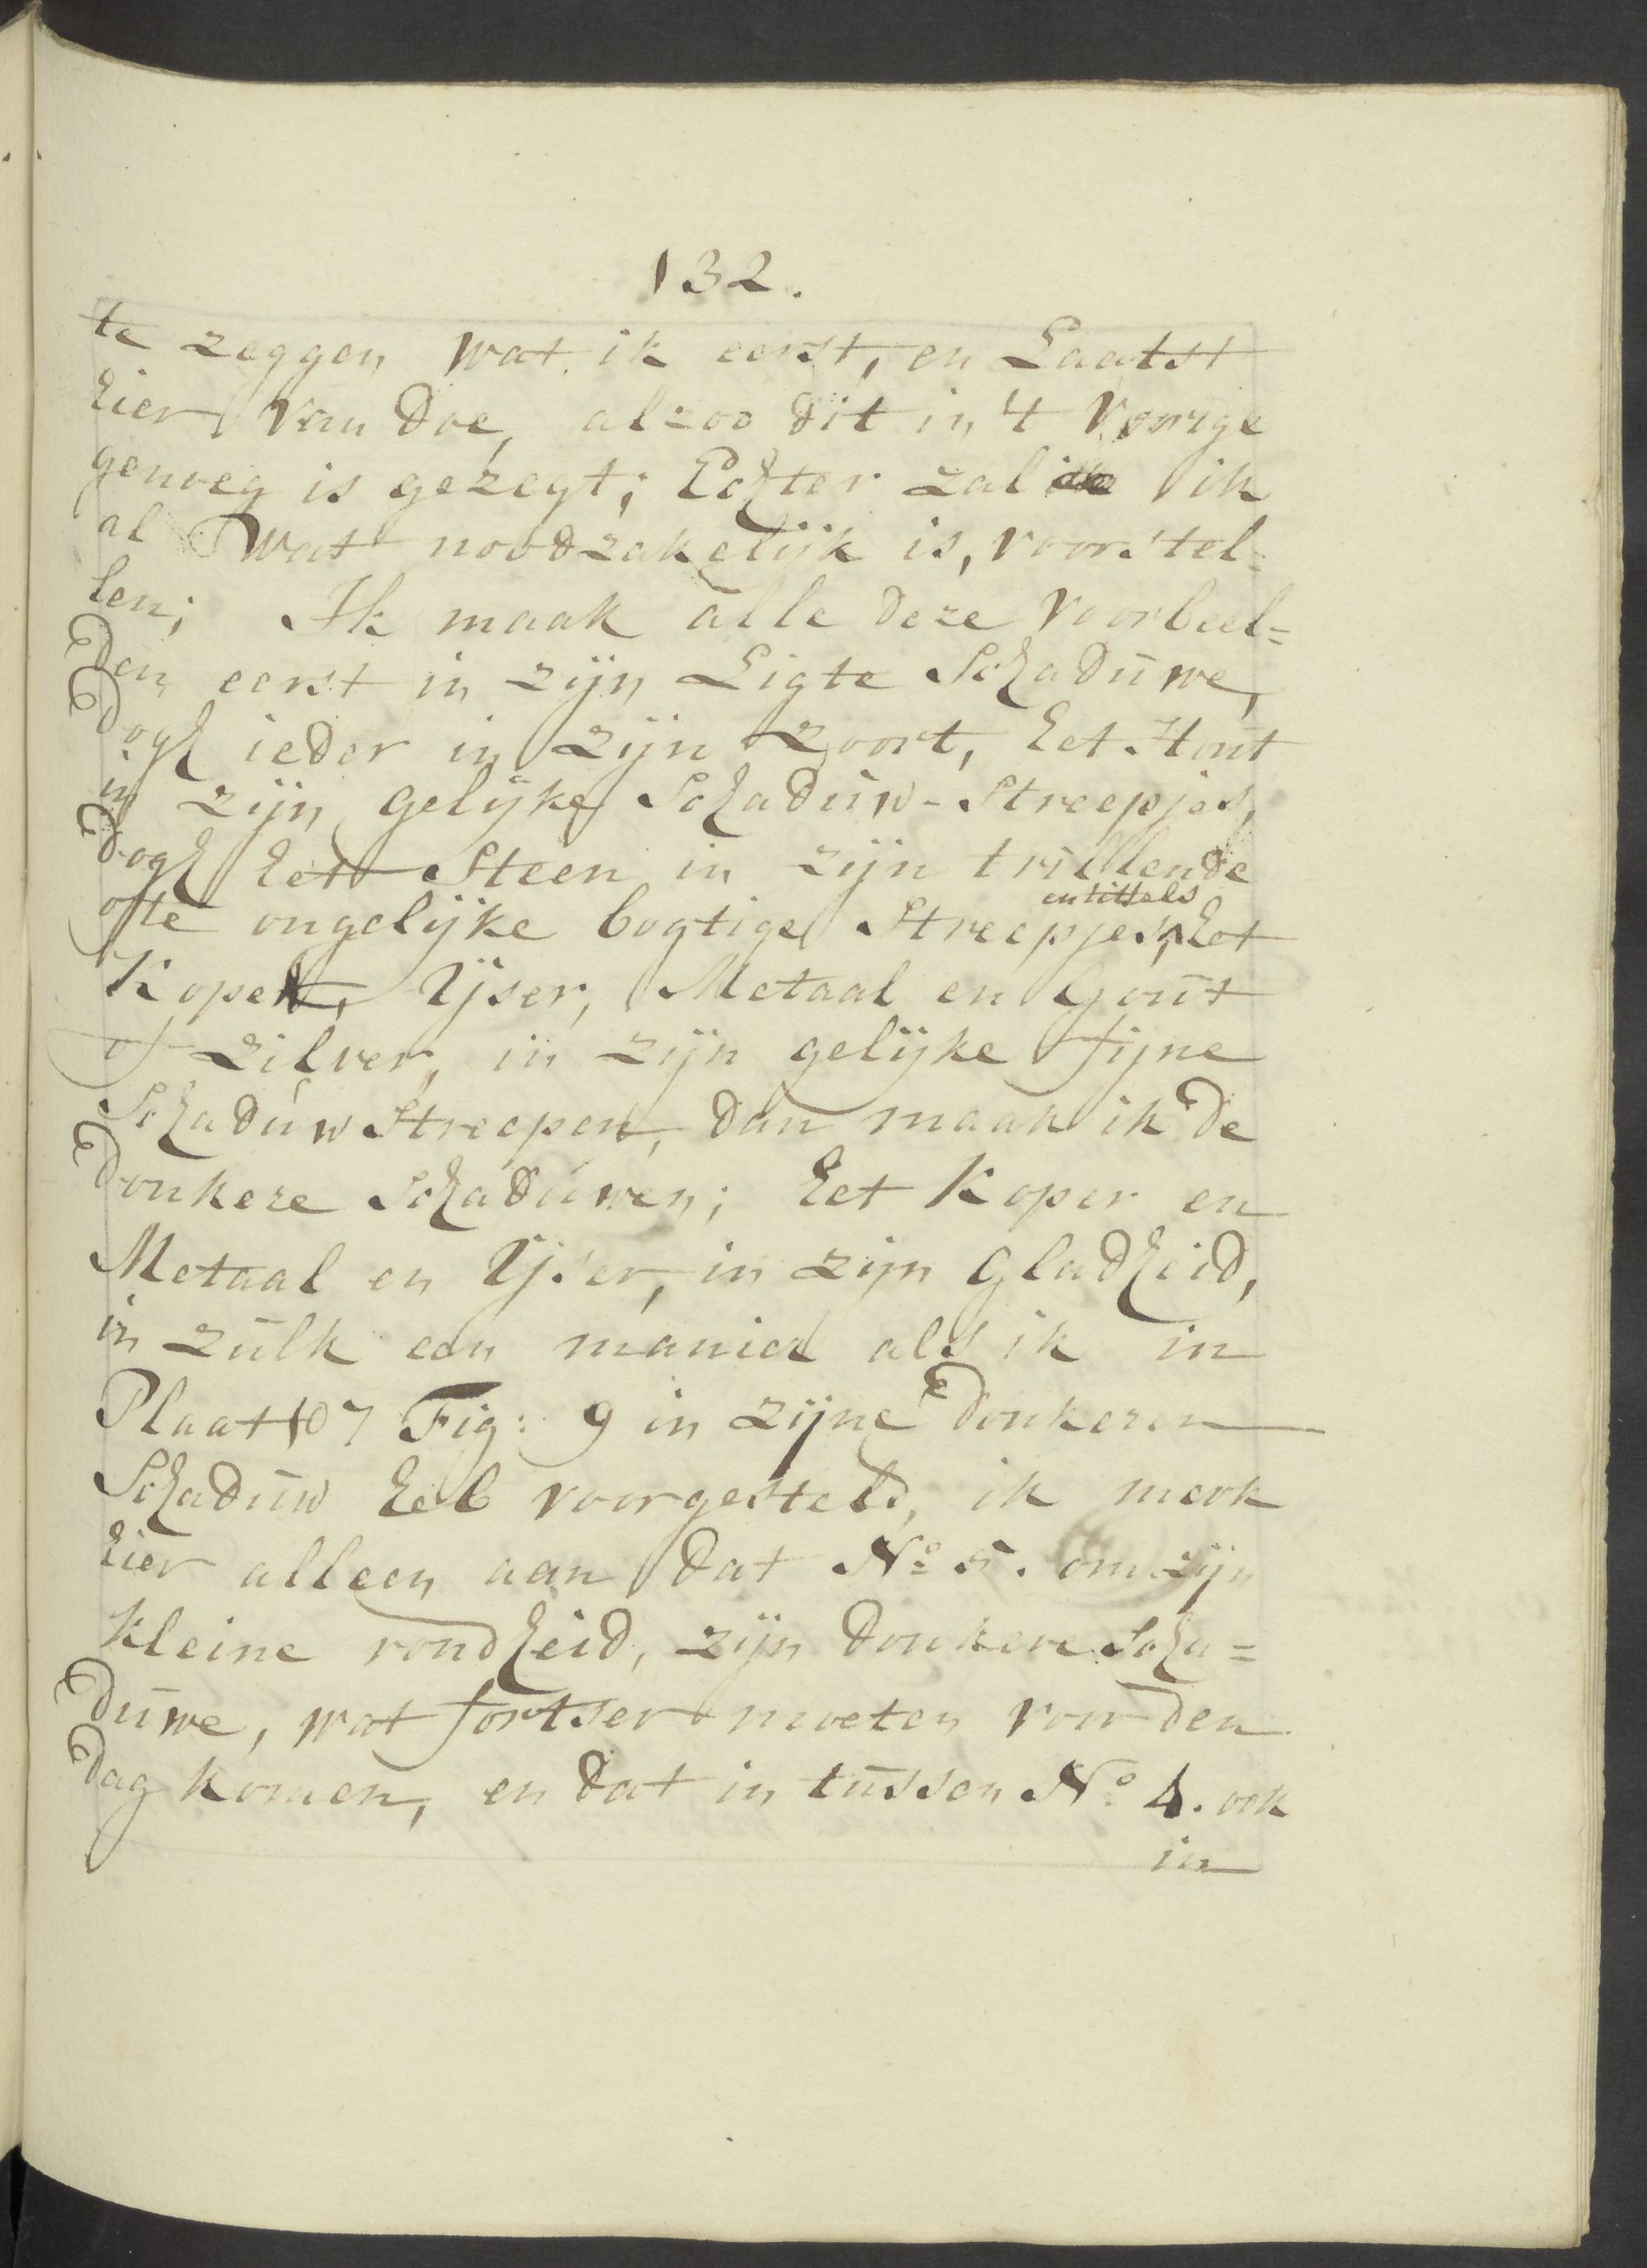 132.
te zeggen wat ik eerst, en Laatst
hier van doe, alzoo dit in 't vorige
genoeg is gezegt; Echter zal ik
al wat noodzakelijk is, voorstel=
len; Ik maak alle deze voorbeel=
den eerst in zijn Ligte Schaduwe,
Dogh ieder in zijn zoort, het Hout
in zijn gelijke Schaduw-Streepjes,
dogh het Steen in zijn trillende
ofte ongelijke bogtige Streepjes, het
en tittels
Koper, Yser, Metaal en Gout
of zilver, in zijn gelijke fijne
Schaduw Streepen, dan maak ik de
donkere schaduwen; het Koper en
Metaal en Yser, in zijn gladheid,
in zulk een manier als ik in
Plaat 107 Fig: 9 in zijne donkeren
Schaduw heb voorgesteld, ik merk
hier alleen aan dat No 5. om zijn
kleine rondheid, zijn donkere Scha=
duwe, wat fortser moeten voor den
dag komen, en dat in tussen No 4. ook
in